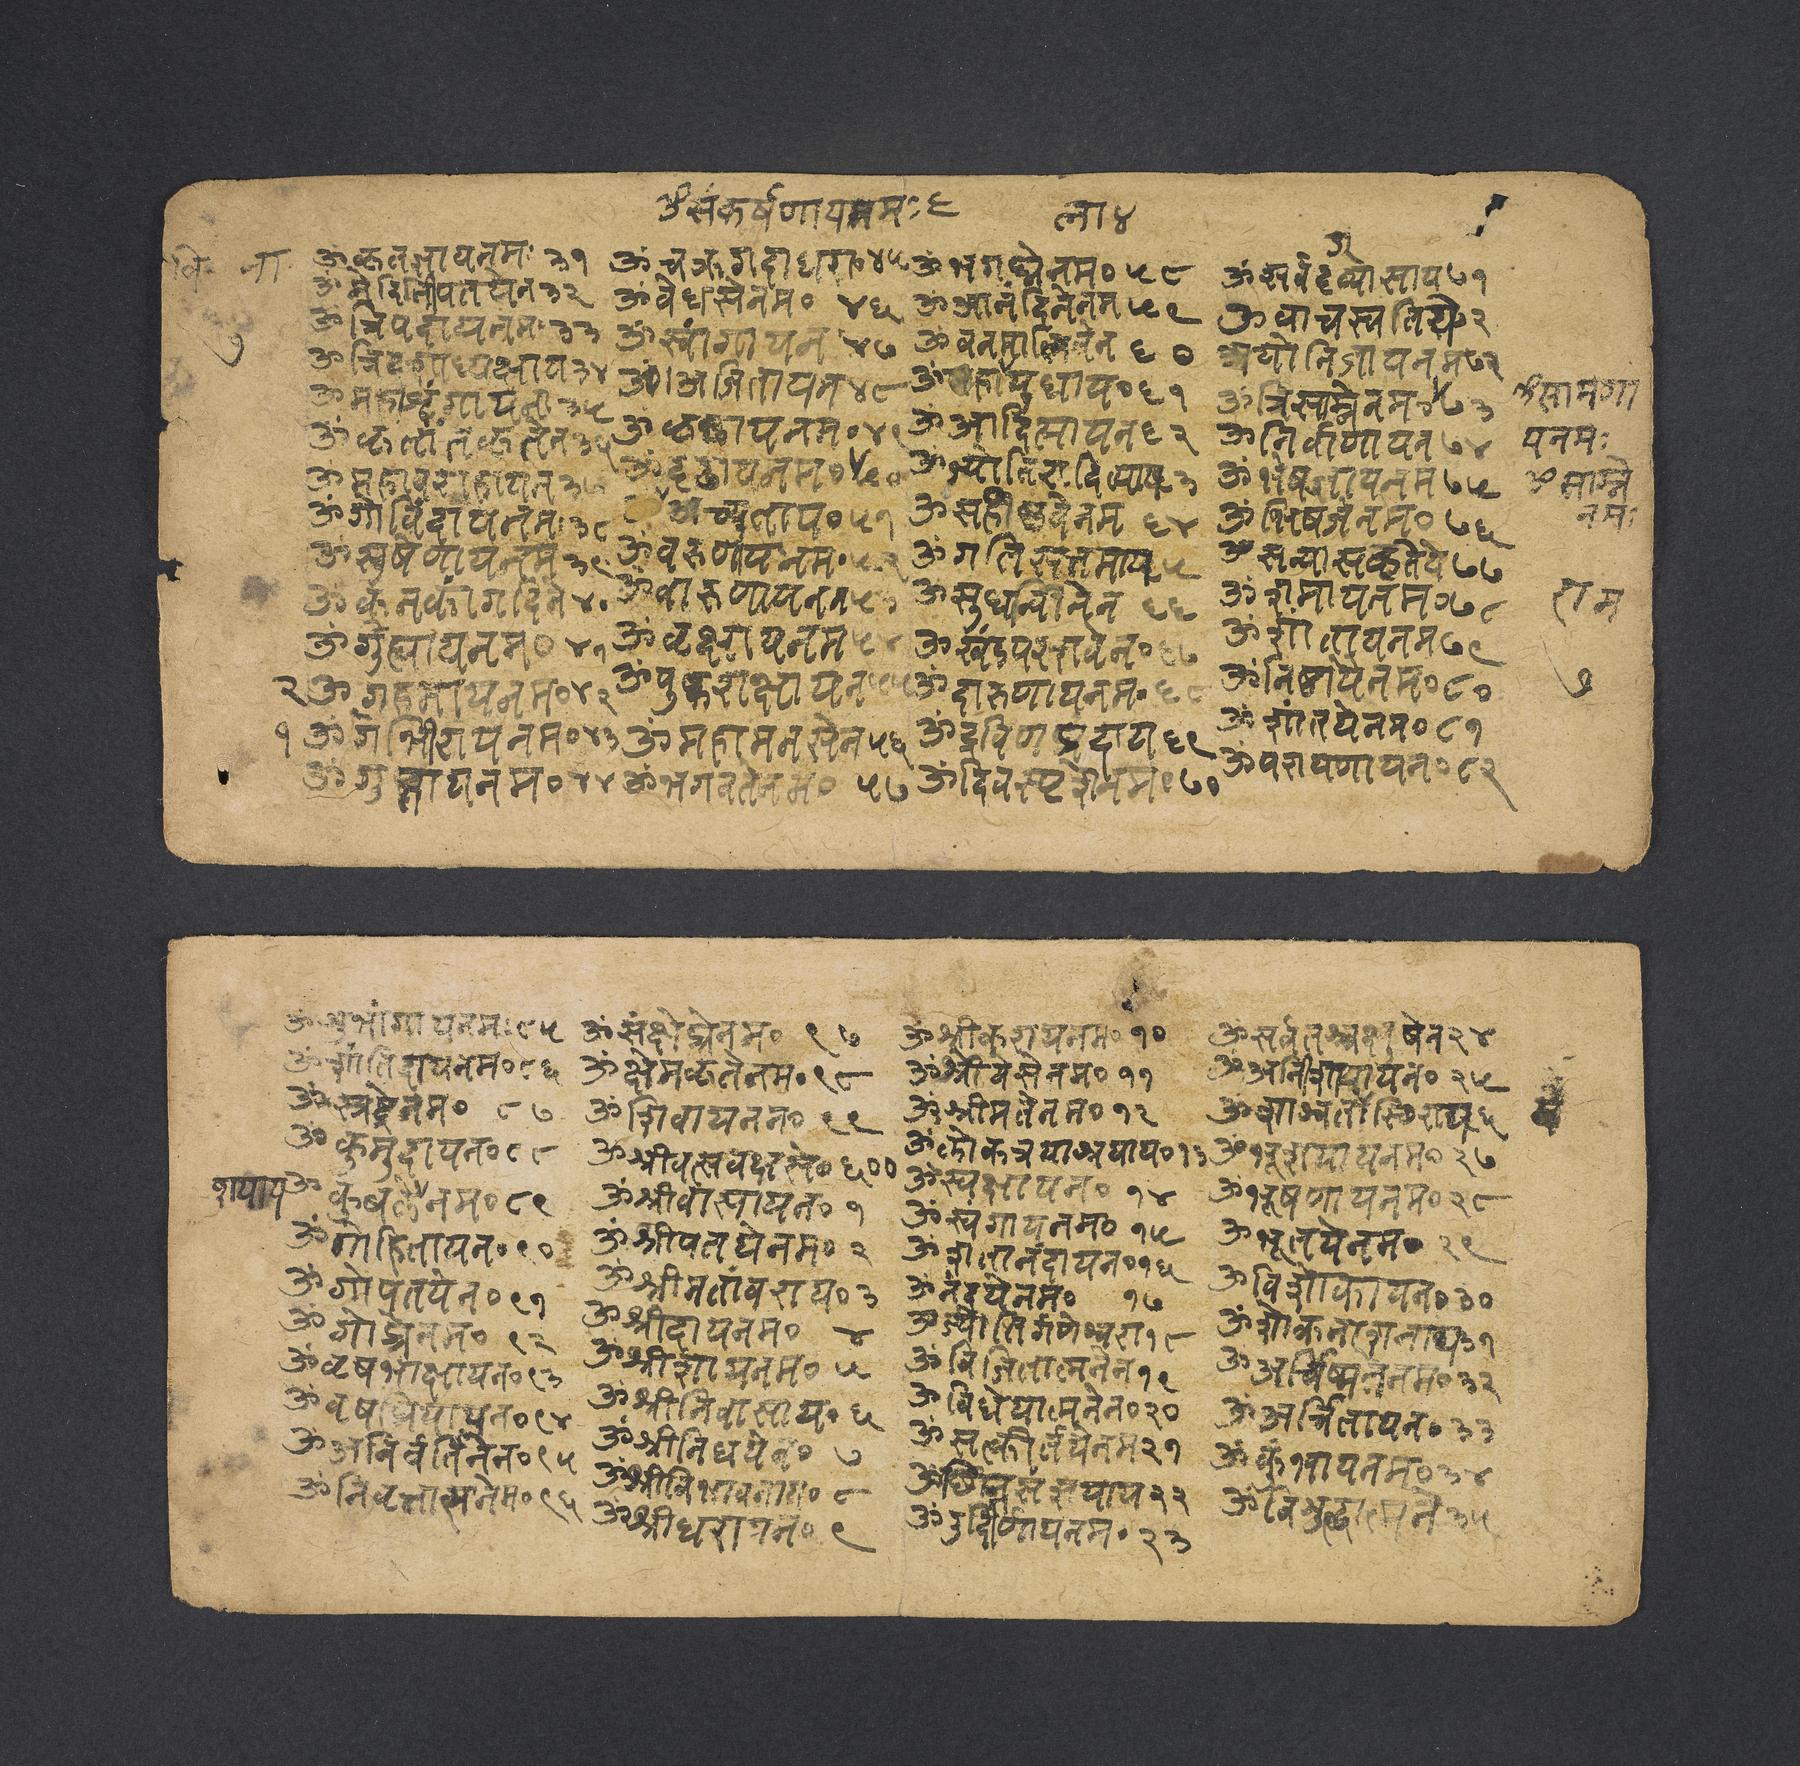 ॐ संकर्षणायनमः ६
ला ४
ॐ कृतज्ञायनमः ३१
ॐ मेदिनीपतयेन ३२
ॐ त्रिपदायनमः ३३
ॐ त्रिदशाध्यक्षाय ३४
ॐ महाशृंगायन ३५
ॐ कृतांतकृतेन ३६
ॐ महावराहायन ३७
ॐ गोविंदायनमः ३८
ॐ सुषेणायनम ३९
ॐ कनकांगदिने ४०
ॐ गुह्यायनम० ४१
२ ॐ गहनायनम० ४२
१ ॐ गंभीरायनम० ४३
ॐ गुप्तायनम० ४४
ॐ चक्रगदाधरा० ४५
ॐ वेधसेनम० ४६
ॐ स्वांगायन ४७
ॐ अजितायन ४८
ॐ कृष्णायनम० ४९
ॐ दृढायनम० ५०
अच्युताय० ५१
ॐ वरुणायनम० ५२
ॐ वारुणायनम ५३
ॐ वृक्षायनम ५४
ॐ पुष्कराक्षायन ५५
ॐ महामनसेन ५६
ॐ भगवतेनम० ५७
ॐ भगघ्नेनम० ५८
ॐ आनंदिनेनम ५९
ॐ वनमालिनेन ६०
ॐ हलायुधाय० ६१
ॐ आदित्यायन ६२
ॐ ज्योतिरादित्याय ६३
ॐ सहीष्णवेनम ६४
ॐ गतिसत्तमाय ६५
ॐ सुधन्वीनेन ६६
ॐ खंडपरशवेन० ६७
ॐ दारुणायनम० ६८
ॐ द्रविणप्रदाय ६९
ॐ दिवस्पृशेनम० ७०
ॐ सर्वदृग्व्यासाय ७१
ॐ वाचस्पतिये २
अयोनिजायनम ७२
ॐ त्रिसाम्नेनम ७३
ॐ निर्वाणायन ७४
ॐ भेषजायनम ७५
ॐ भिषजेनम० ७६
ॐ सन्यासकृतेये ७७
ॐ शमायनम० ७८
ॐ शांतायनम ७९
ॐ निष्ठायेनम० ८०
ॐ शांतयेनम० ८१
ॐ परायणायन० ८२
ॐ सामगा
यनमः
ॐ साम्ने
नमः
राम
७
ॐ शुभांगायनमः ८५
ॐ शांतिदायनम० ८६
ॐ स्रष्ट्रेनम० ८७
ॐ कुमुदायन० ८८
शयाय ॐ कुवलेनम० ८९
ॐ गोहितायन० ९०
ॐ गोपतयेन० ९१
ॐ गोप्त्रेनम० ९२
ॐ वृषभाक्षायन० ९३
ॐ वृषप्रियायन० ९४
ॐ अनिर्वर्तिनेन० ९५
ॐ निवृत्तात्मनेम० ९६
ॐ संक्षेप्त्रेनम० ९७
ॐ क्षेमकृतेनम० ९८
ॐ शिवायनन० ९९
ॐ श्रीवत्सवक्षसे० ६००
ॐ श्रीवासायन० १
ॐ श्रीपतयेनम० २
ॐ श्रीमतांवराय० ३
ॐ श्रीदायनम० ४
ॐ श्रीशायनम० ५
ॐ श्रीनिवासाय० ६
ॐ श्रीनिधयेन० ७
ॐ श्रीविभावनाय० ८
ॐ श्रीधरायन० ९
ॐ श्रीकरायनम० १०
ॐ श्रेयसेनम० ११
ॐ श्रीमतेनम० १२
ॐ लोकत्रयाश्रयाय० १३
ॐ स्वक्षायन० १४
ॐ स्वंगायनम० १५
ॐ शतानंदायन० १६
ॐ नंदयेनम० १७
ॐ ज्योतिर्गणेश्वरा १८
ॐ विजितात्मनेन १९
ॐ विधेयात्मनेन० २०
ॐ सत्कीर्तयेनम २१
ॐ छिन्नसंशयाय २२
ॐ उदीर्णायनम० २३
ॐ सर्वतश्चक्षुषेन २४
ॐ अनीशायायन० २५
ॐ शाश्वतस्थिराय २६
ॐ भूशयायनम० २७
ॐ भूषणायनम० २८
ॐ भूतयेनम० २९
ॐ विशोकायन० ३०
ॐ शोकनाशनाय ३१
ॐ अर्चिष्मतेनम० ३२
ॐ अर्चितायन० ३३
ॐ कुंभायनम० ३४
ॐ विशुद्धात्मने ३५